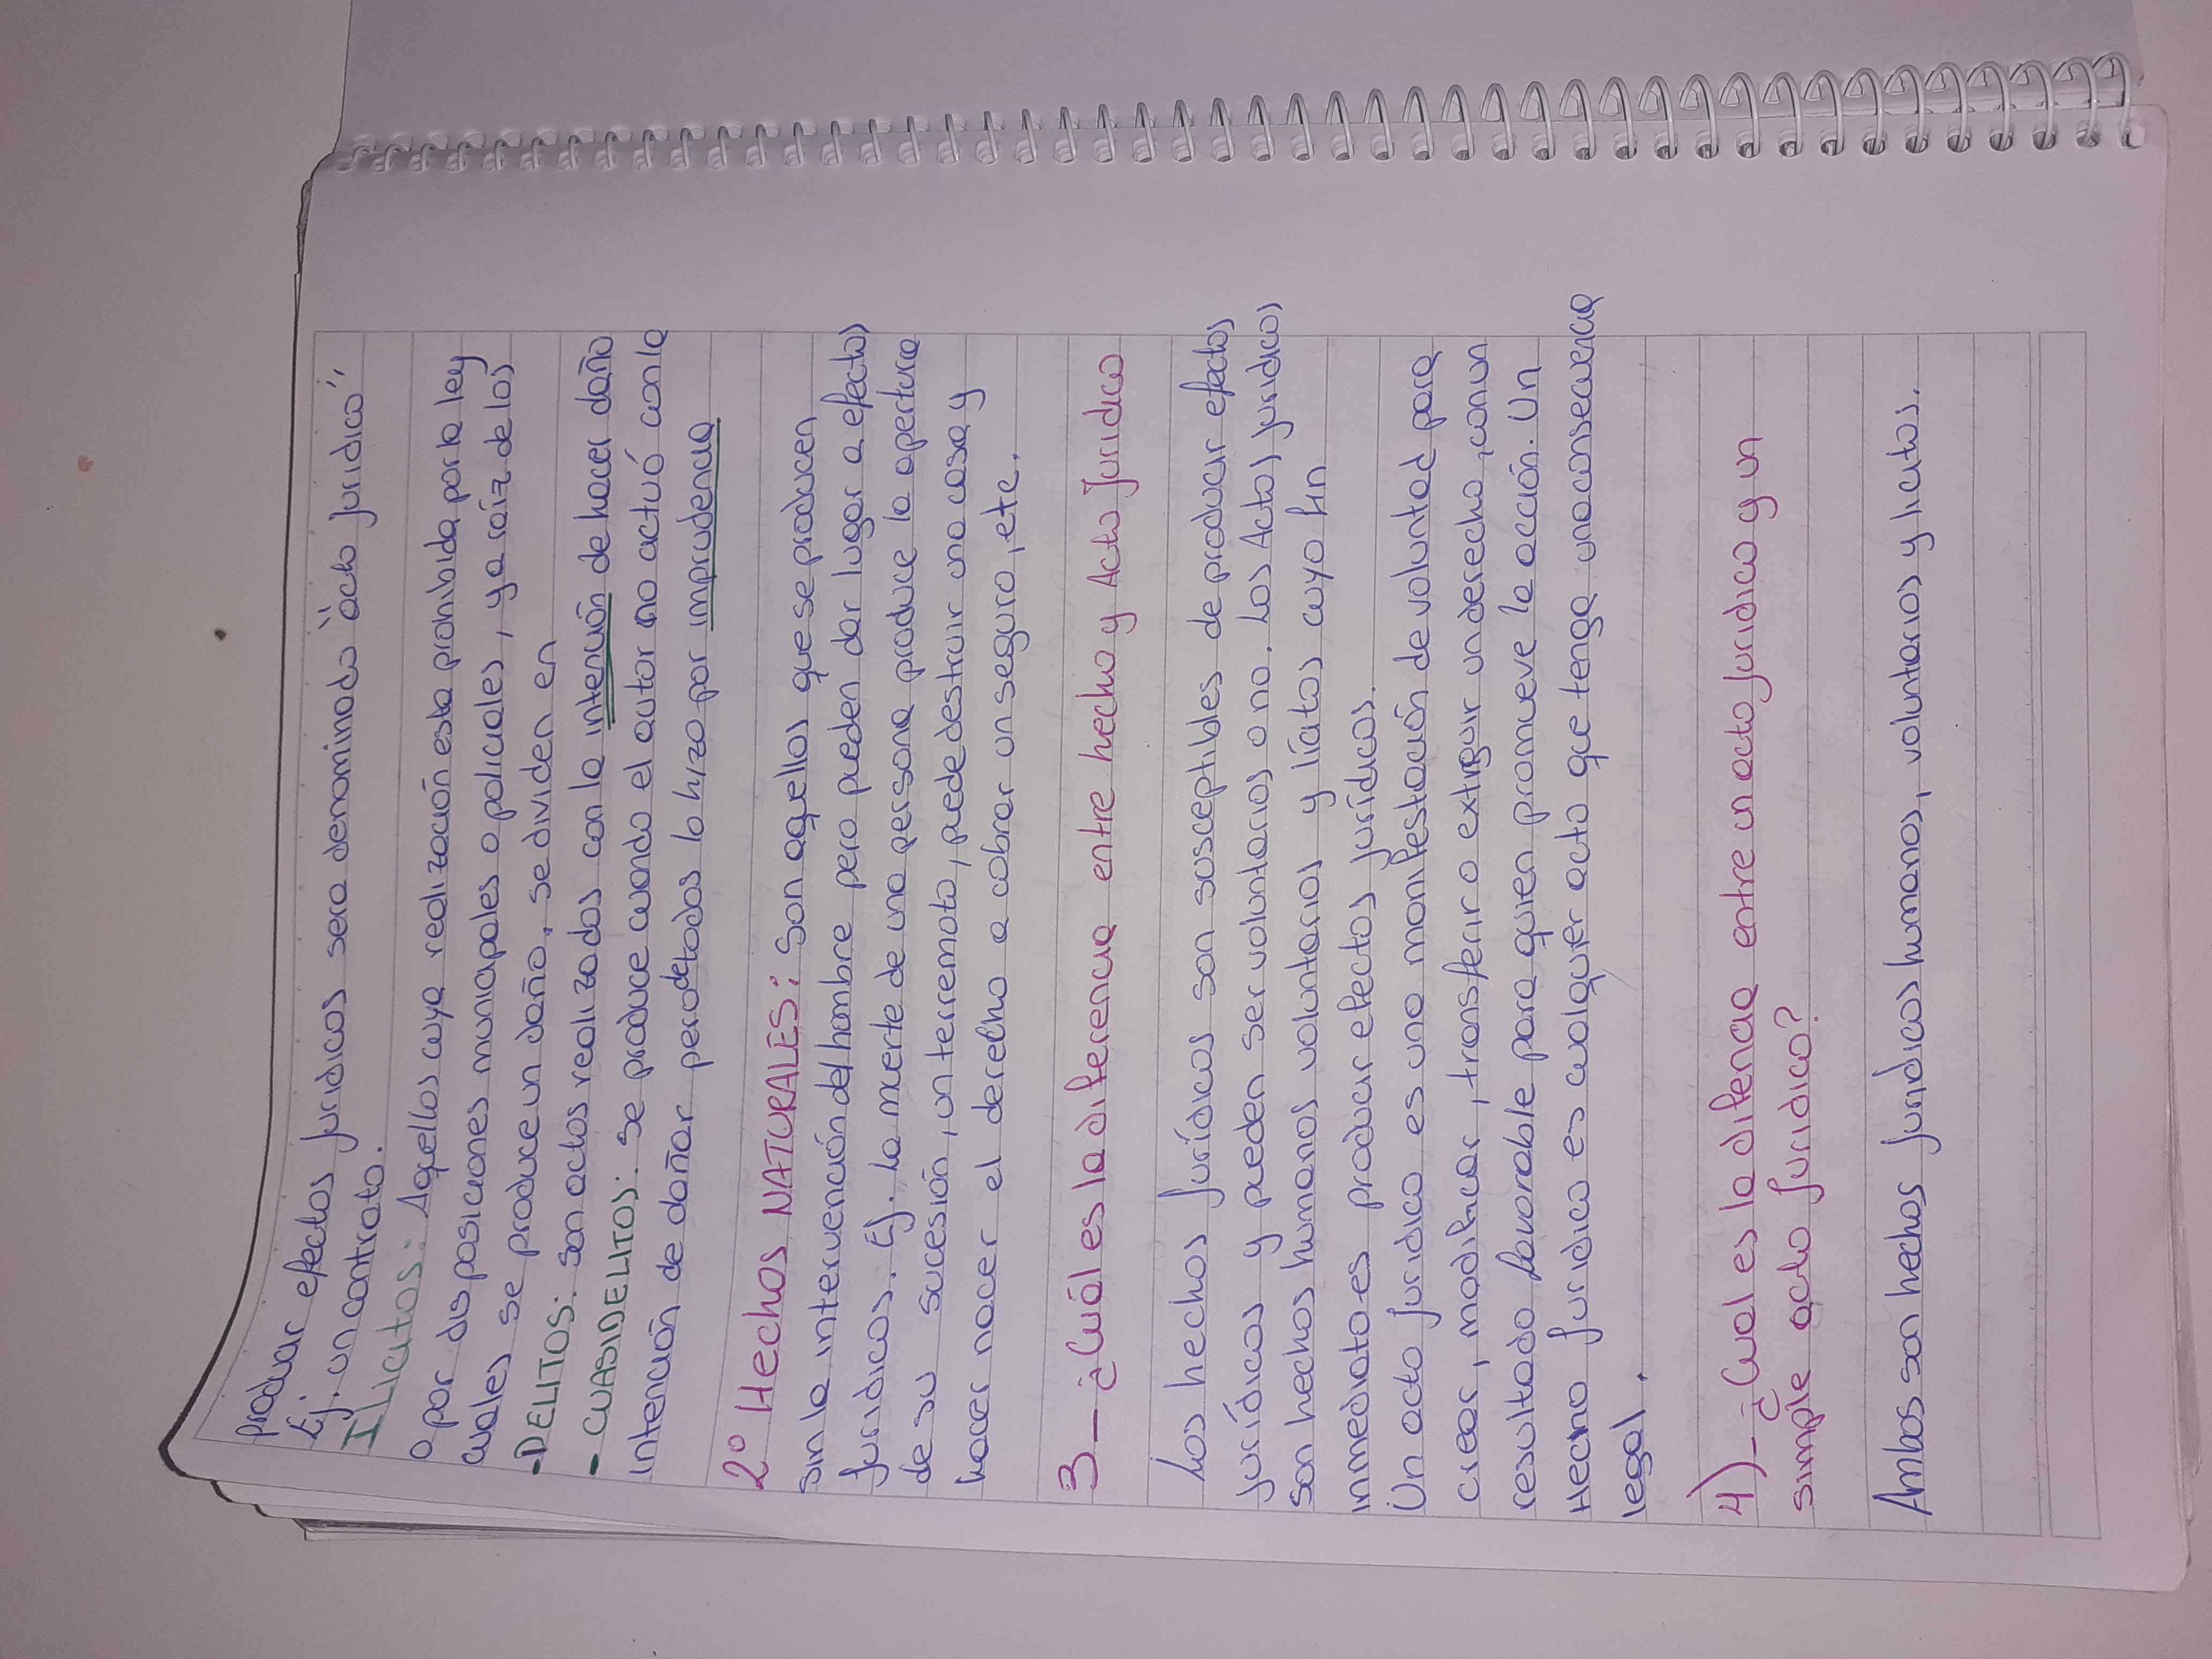 producir efectos jurídicos sera denominado "acto jurídico"
Ej. un contrato.
ILICITOS: Aquellos cuya realización esta prohibida por la ley
o por disposiciones municipales o policiales, y a raíz de los
cuales se produce un daño, se dividen en
-DELITOS: son actos realizados con la intención de hacer daño
- CUASIDELITOS: se produce cuando el autor no actuó con la
intención de dañar pero de todos lo hizo por imprudencia
2º Hechos NATURALES: Son aquellos que se producen
sin la intervención del hombre pero pueden dar lugar a efectos
jurídicos. Ej. la muerte de una persona produce la apertura
de su sucesión, un terremoto, puede destruir una casa y
hacer nacer el derecho a cobrar un seguro, etc.
3_ ¿Cuál es la diferencia entre hecho y Acto Jurídico
Los hechos jurídicos son susceptibles de producir efectos
jurídicos y pueden ser voluntarios o no. Los Actos jurídicos
son hechos humanos voluntarios y lícitos cuyo fin
inmediato es producir efectos jurídicos.
Un acto jurídico es una manifestación de voluntad para
crear, modificar, transferir o extinguir un derecho, con un
resultado favorable para quien promueve la acción. Un
Hecho jurídico es cualquier acto que tenga una consecuencia
legal.
4)_ ¿Cual es la difencia entre un acto jurídico y un
simple acto jurídico?
Ambos son hechos jurídicos humanos, voluntarios y lícitos.